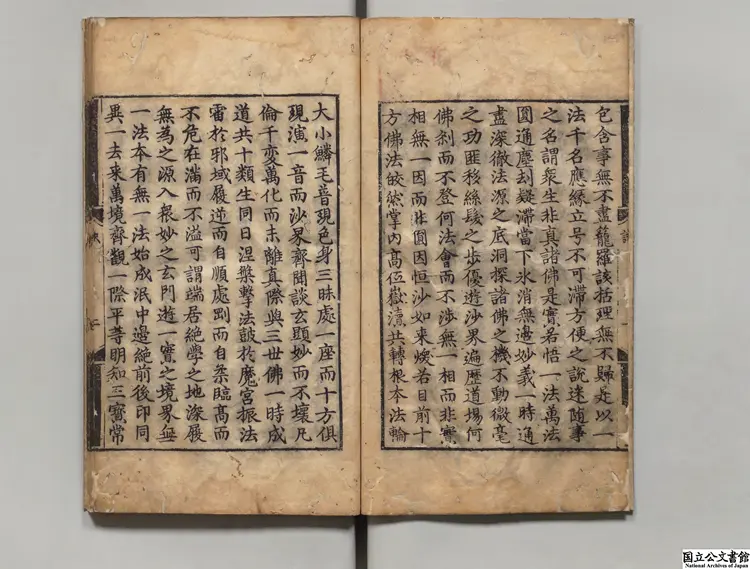 包含事無不盡籠羅該括理無不歸是以一
法千名應緣立号不可滯方便之說迷隨事
之名謂衆生非真諸佛是實若悟一法萬法
圓通塵劫疑滯當下氷消無邊妙義一時通
盡深徹法源之底洞探諸佛之機不動微毫
之功匪移絲髮之步優遊沙界遍歷道場何
佛刹而不登何法會而不涉無一相而非實
相無一因而非圓因恒沙如来煥若目前十
方佛法皎然掌內高低嶽瀆共轉根本法輪
大小鱗毛普現色身三昧處一座而十方俱
現演一音而沙界齊聞談玄顯妙而不壊凡
倫千變萬化而未離真際與三世佛一時成
道共十類生同日涅槃擊法鼓於魔宮振法
雷於邪域履逆而自順處剛而自柔臨高而
不危在滿而不溢可謂端居絶學之地深履
無為之源入衆妙之玄門遊一實之境界無
一法本有無一法始成泯中邊絶前後印同
異一去来萬境齊觀一際平等明知三寶常
国立公文書館
National Archives of Japan